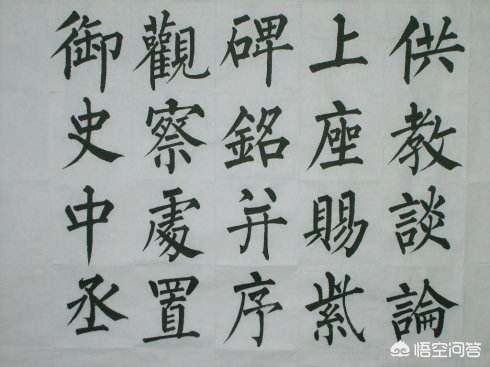 供教談論
上座賜紫
碑銘并序
觀察處置
御史中丞
悟空问答